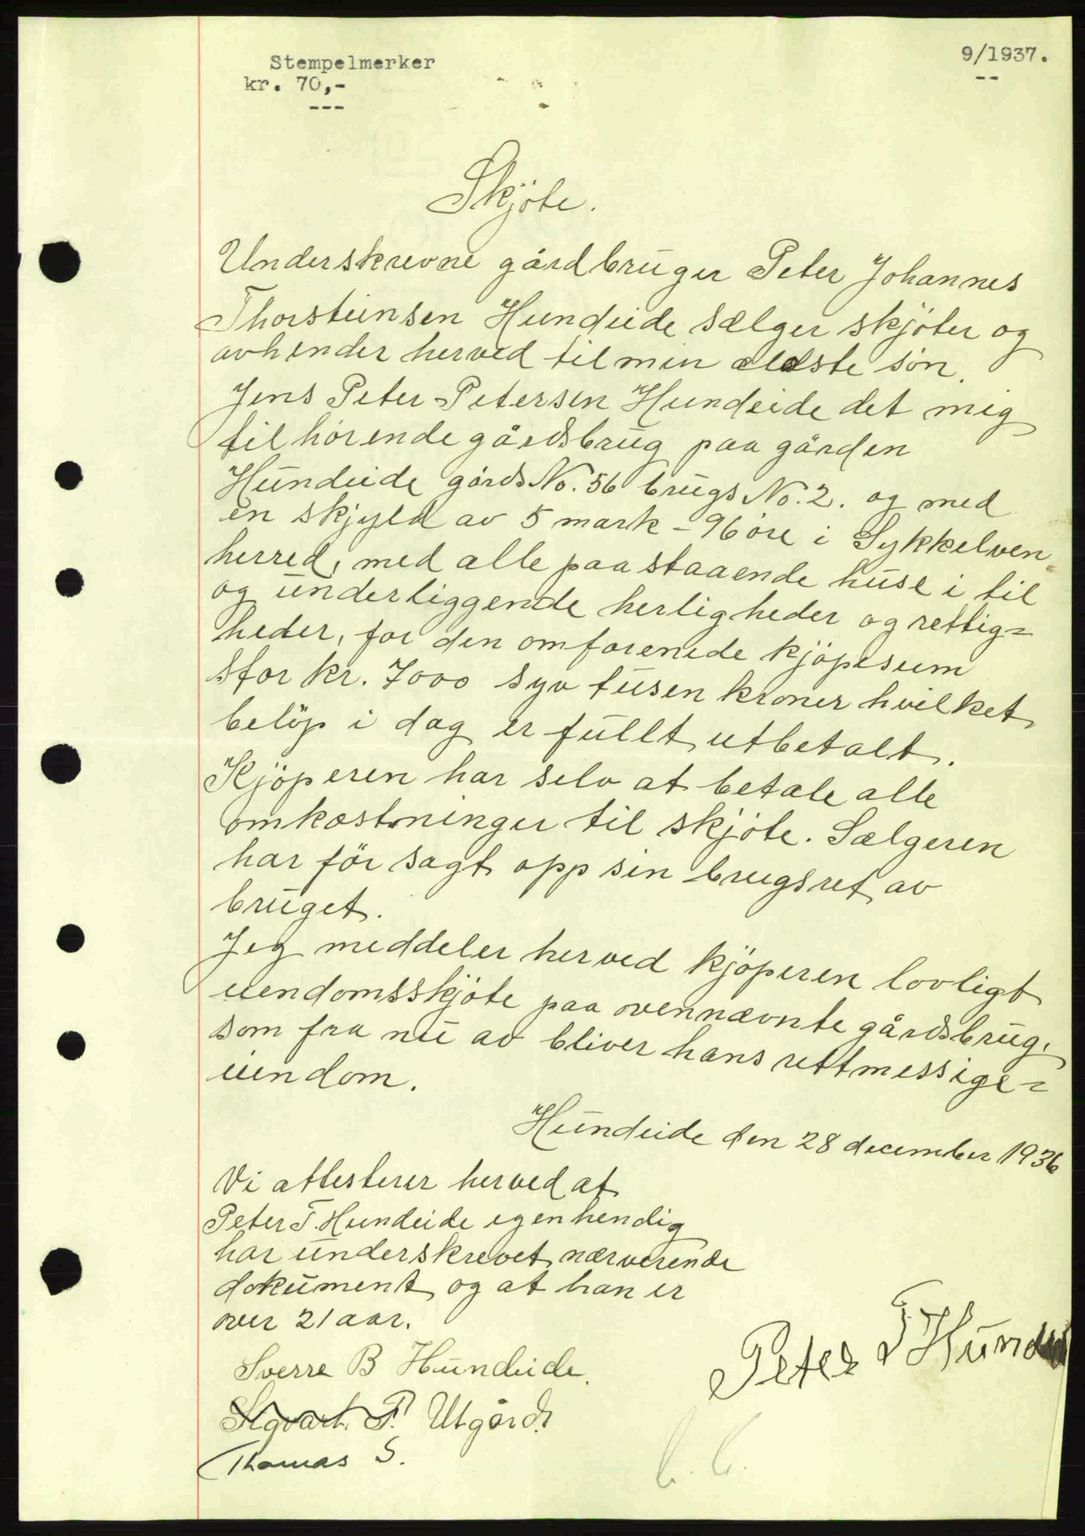 Stempelmerker
kr. 70,-
---
9/1937.
--
Skjöte.
Underskrevne gårdbruger Peter Johannes
Thorsteinsen Hundeide sælger skjöter og
avhender herved til min eldste sön
Jens Peter Petersen Hundeide det mig
tilhörende gårdsbrug paa gården
Hundeide gårds No. 56 brugs No. 2. og med
en skjyld av 5 mark - 96 öre i Sykkelven
herred, med alle paastaaende huse i til
og underliggende herligheder og rettig=
heder, for den omforenede kjöpesum
stor kr. 7000 syv tusen kroner hvilket
belöp i dag er fullt utbetalt.
Kjöperen har selv at betale alle
omkostninger til skjöte. Sælgeren
har för sagt opp sin brugsret av
bruget.
Jeg meddeler herved kjöperen lovligt
eiendomsskjöte paa ovennævnte gårdsbrug,
som fra nu av bliver hans rettmessige=
eiendom.
Hundeide den 28 december 1936
Vi attesterer herved at
Peter T. Hundeide egenhendig
har underskrevet nærverende
dokument og at han er
over 21 aar.
Sverre B Hundeide.
Sigvart P. Utgård.
Thomas S.
Peter T Hundei